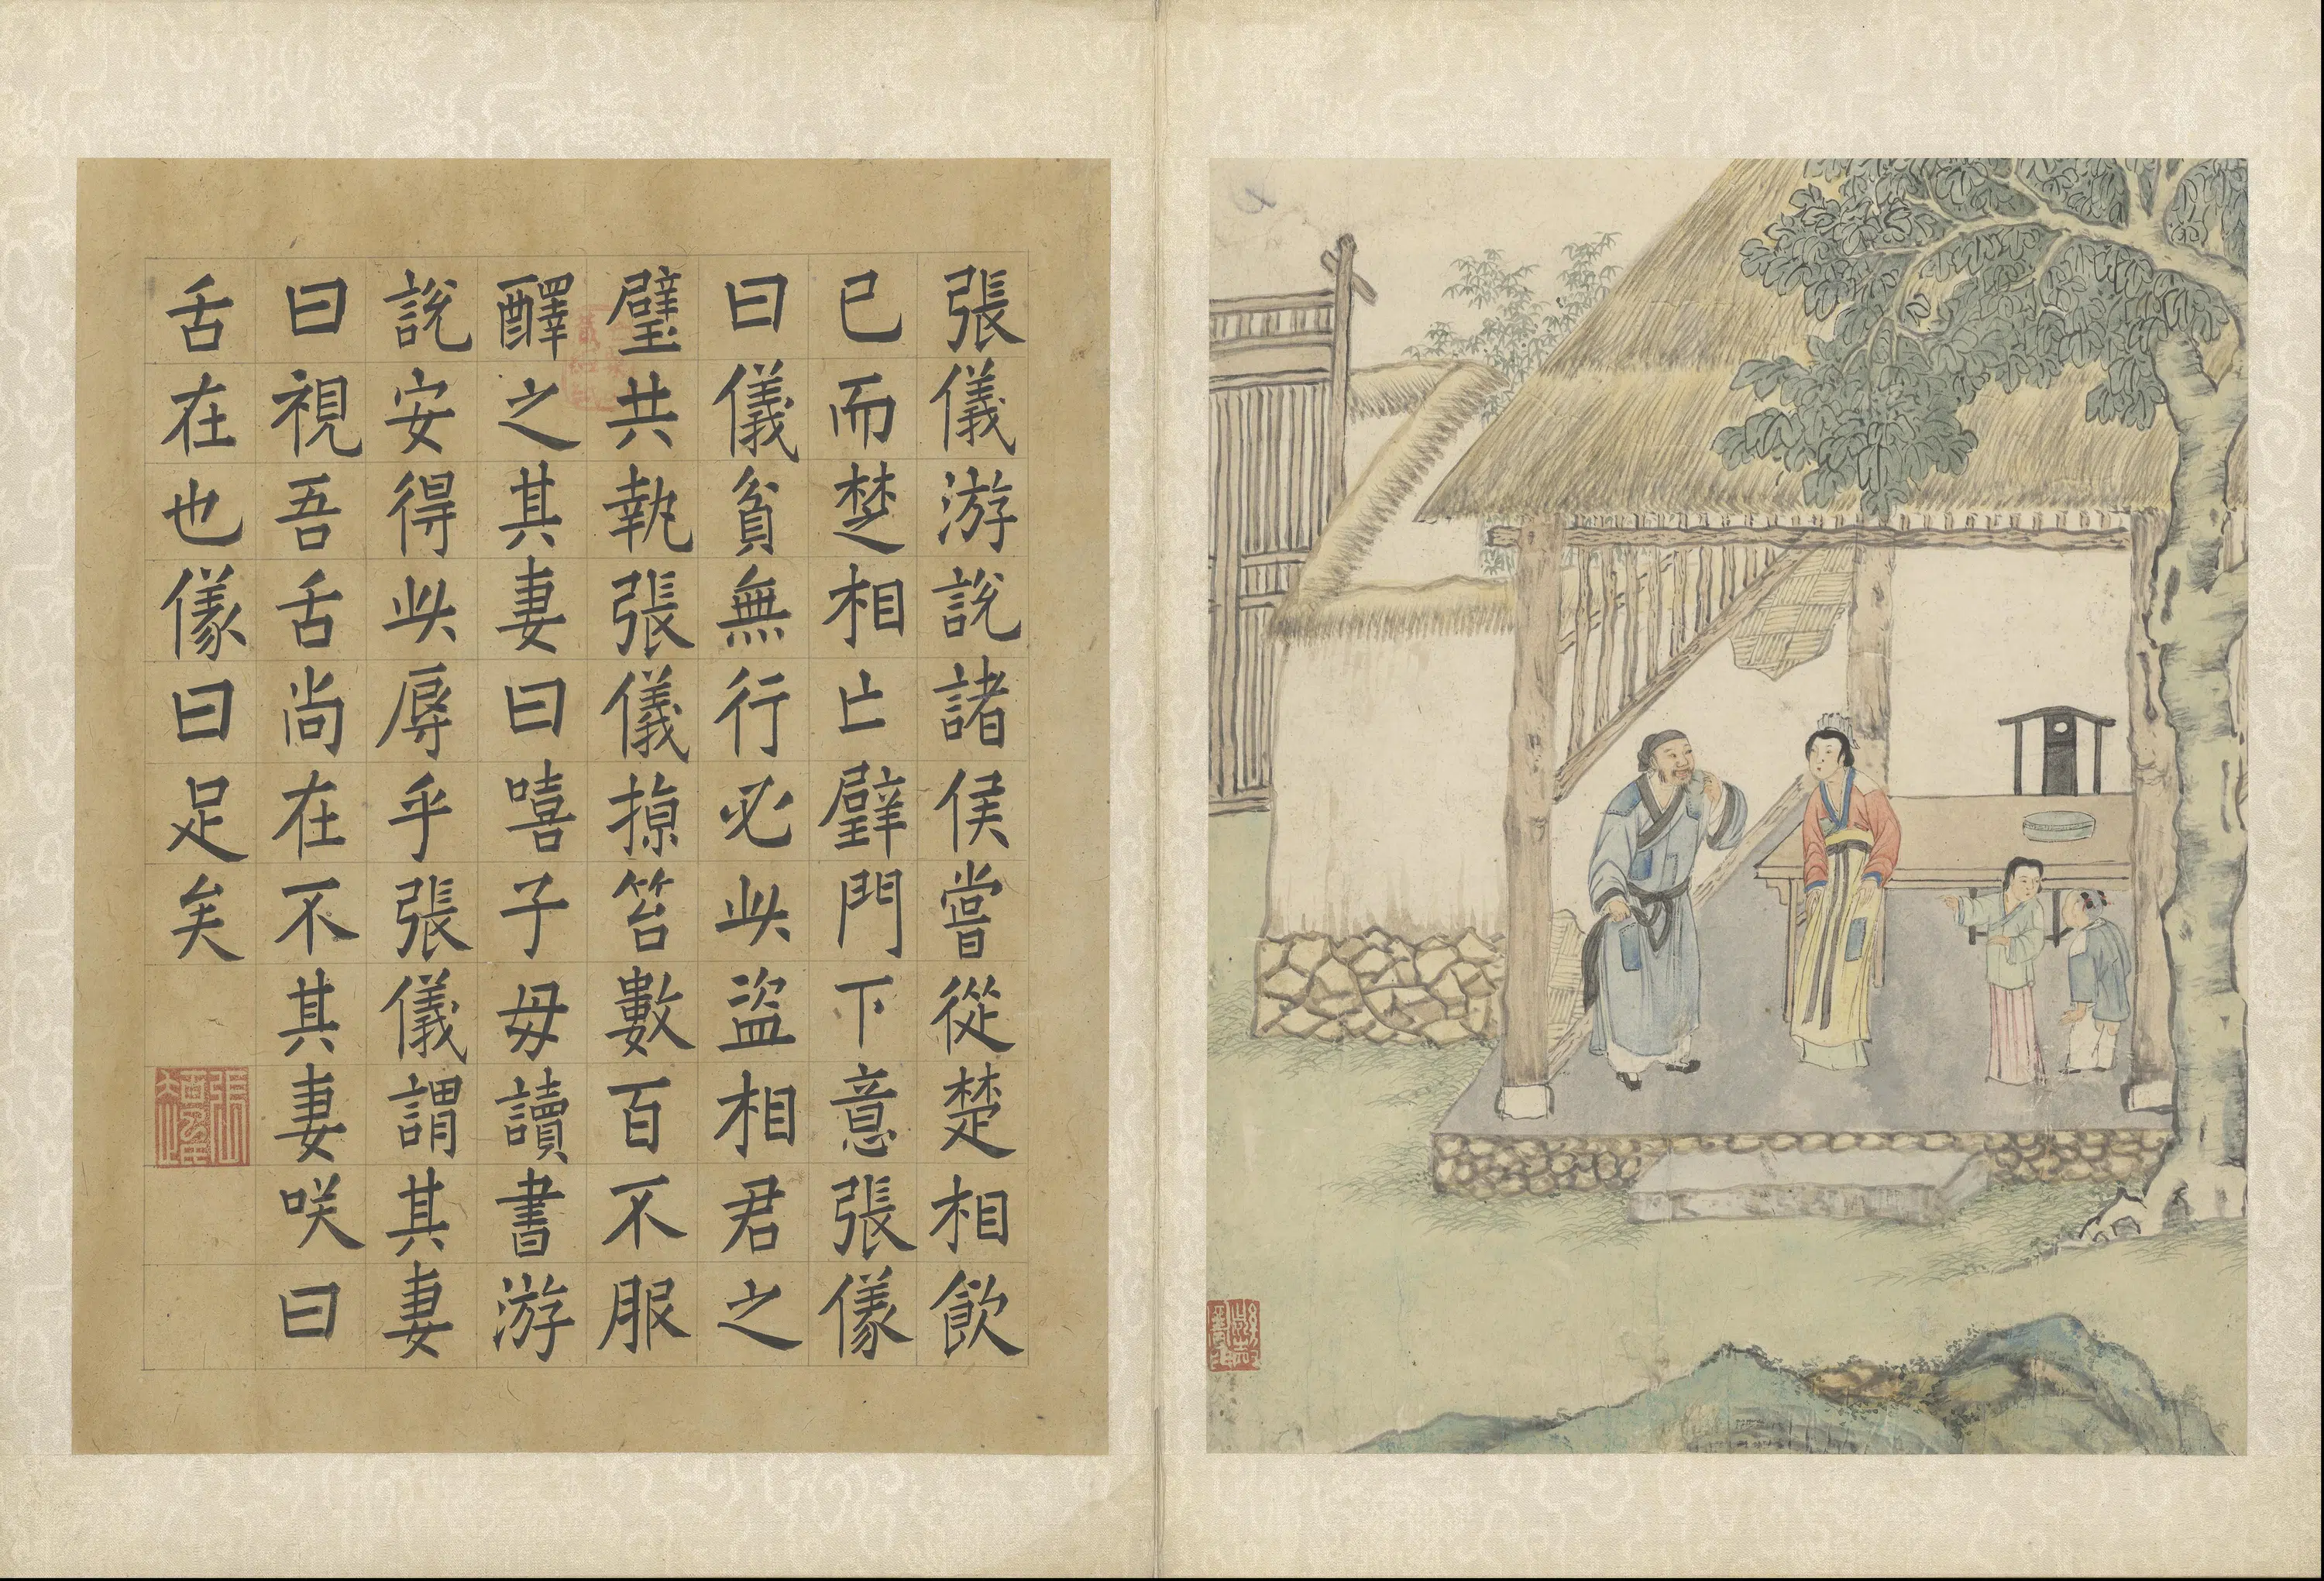 張儀游說諸侯嘗從楚相飲
已而楚相亡璧門下意張儀
曰儀貧無行必此盜相君之
璧共執張儀掠笞數百不服
醳之其妻曰嘻子毋讀書游
說安得此辱乎張儀謂其妻
曰視吾舌尚在不其妻咲曰
舌在也儀曰足矣